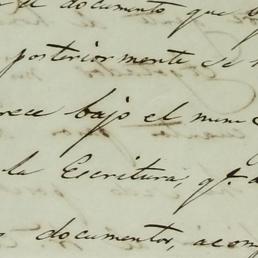 el documento que
posteriormente se
bajo el num
la Escritura, q.
documentos, acom